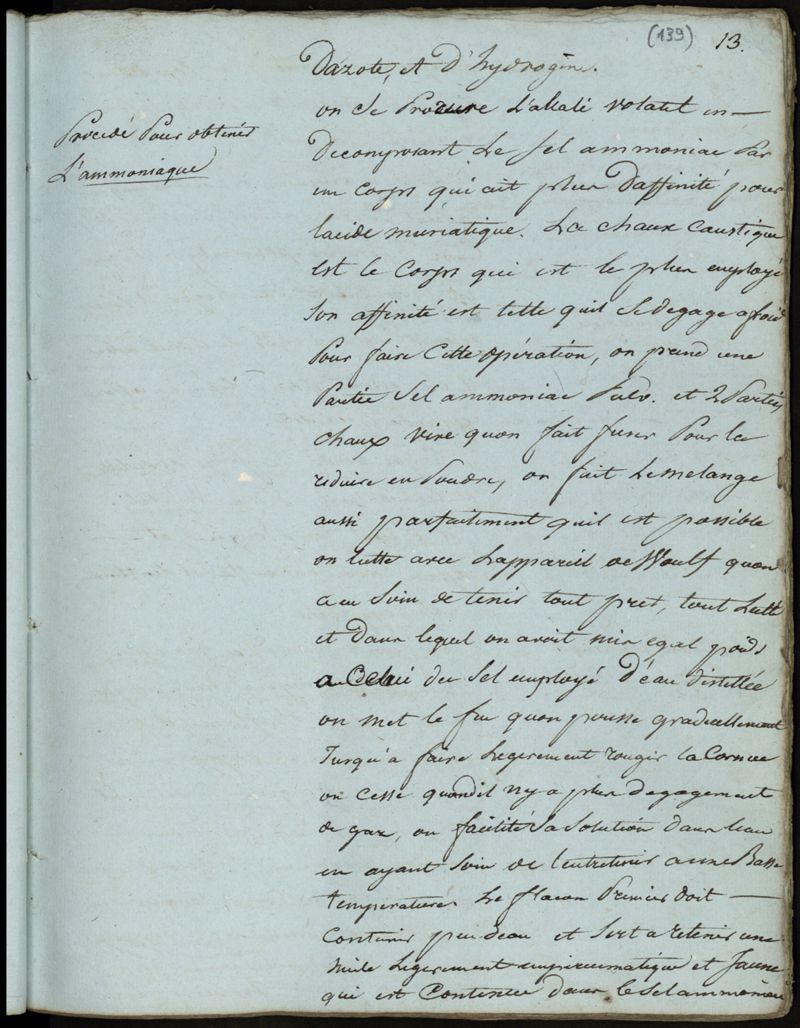 (139) 13.
D'azote, et D'hydrogéne.
Procédé Pour obtenir
L'ammoniaque
on se Procure L'alkali volatil en
Decomposant Le sel ammoniac Par
un corps qui ait plus D'affinité pour
lacide muriatique. La chaux caustique
est le corps qui est le plus employé
son affinité est telle quil se degage a froid
Pour faire cette opération, on prend une
Partie Sel ammoniac Pulv. et 2 Parties
chaux vive quon fait fuser Pour la
reduire en Poudre, on fait Le melange
aussi parfaitement quil est possible
on lutte avec Lappareil de Woulf quon
a eu soin de tenir tout pret, tout Lutté
et dans lequel on avoit mis egal poids
a Celui du Sel employé D'eau distillée
on met le feu quon pousse graduellement
Jusqu'a faire Legerement rougir la Cornue
on cesse quand il ny a plus degagement
de gaz, on facilité sa solution dans leau
en ayant soin de lentretenir a une Basse
temperature. Le flacon Premier doit
Contenir peu deau et sert a retenir une
huile Legerement empireumatique et Jaune
qui est Contenue dans le Sel ammoniac